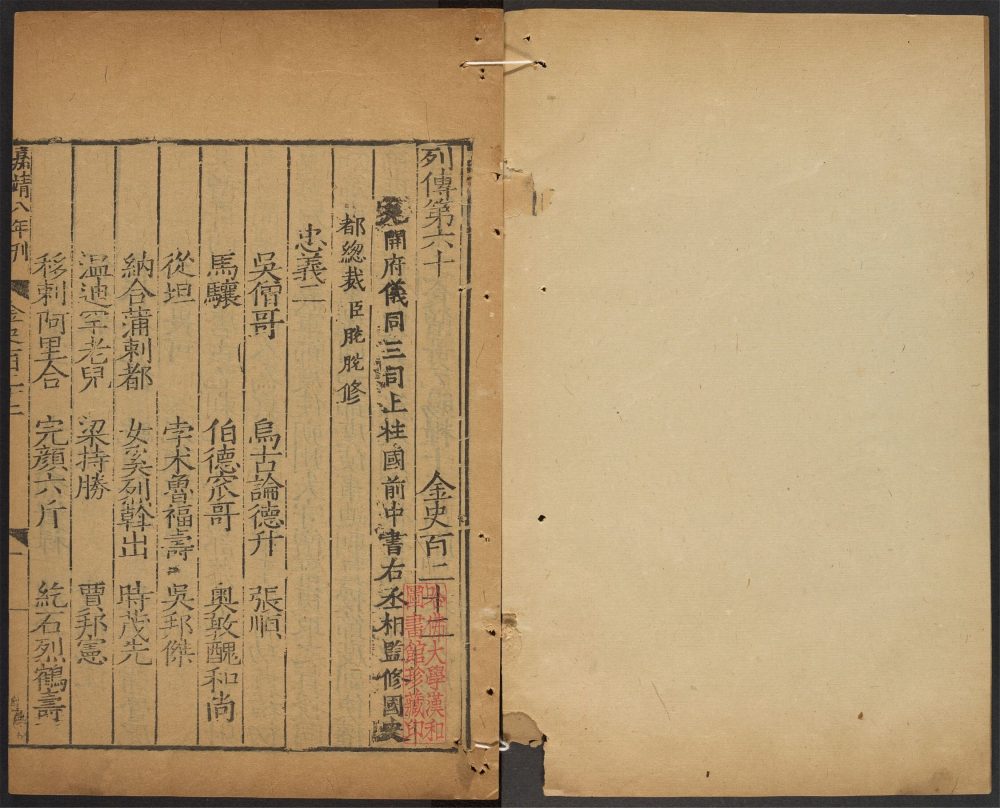 列傳第六十　金史百二十二
開府儀同三司上柱國前中書右丞相監修國史
都總裁臣脫脫修
忠義二
吳僧哥　烏古論德升　張順
馬驤　伯德窊哥　奧敦醜和尚
從坦　孛术魯福壽　吳邦傑
納合蒲剌都　女奚烈斡出　時茂先
溫迪罕老兒　梁持勝　賈邦憲
移剌阿里合　完顏六斤　紇石烈鶴壽
嘉靖八年刊　金史百二十二　一
哈佛大學漢和
圖書館珍藏印